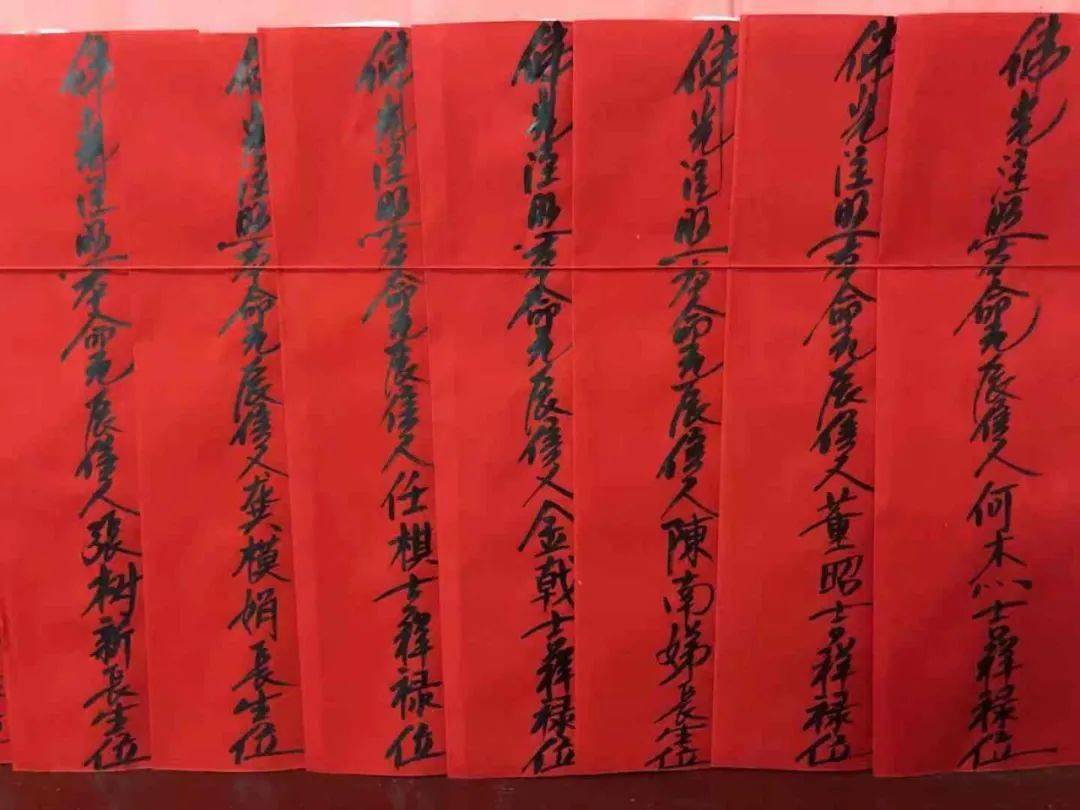 佛光注照本命元辰信人何木心吉祥禄位
佛光注照本命元辰信人董昭吉祥禄位
佛光注照本命元辰信人陳南娣長生位
佛光注照本命元辰信人金戟吉祥禄位
佛光注照本命元辰信人任棋吉祥禄位
佛光注照本命元辰信人龚模娟長生位
佛光注照本命元辰信人張树新長生位